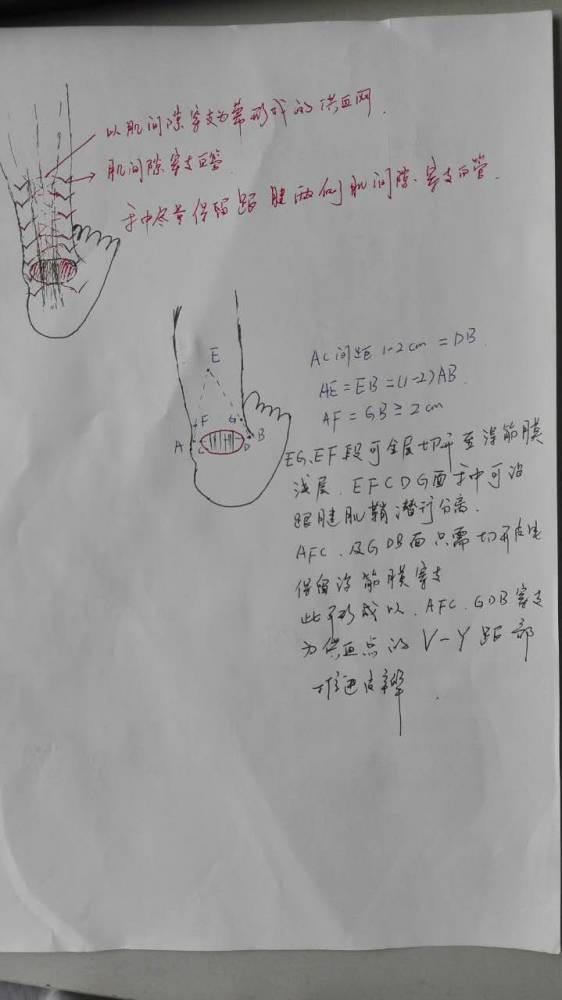 以肌间隙穿支为蒂形成的供血网.
肌间隙穿支血管
手中尽量保留跟腱两侧肌间隙.穿支血管.
E
F
G
A
C
D
B
AC间距1-2cm=DB.
AE=EB=(1-2)AB.
AF=GB≥2cm
EG.EF段可全层切开至深筋膜
浅层.EFCDG面手中可沿
跟腱肌鞘潜行分离.
AFC.及GDB面只需切开皮肤
保留深筋膜穿支
此下形成以.AFC.GDB穿支
为供血点的V-Y跟部
推进皮瓣.